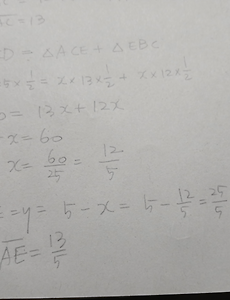 AC = 13
CD = △ACE + △EBC
× 1/2 = x × 13 × 1/2 + x × 12 × 1/2
0 = 13x + 12x
x = 60
x = 60/25 = 12/5
= y = 5 - x = 5 - 12/5 = 25/5
AE = 13/5